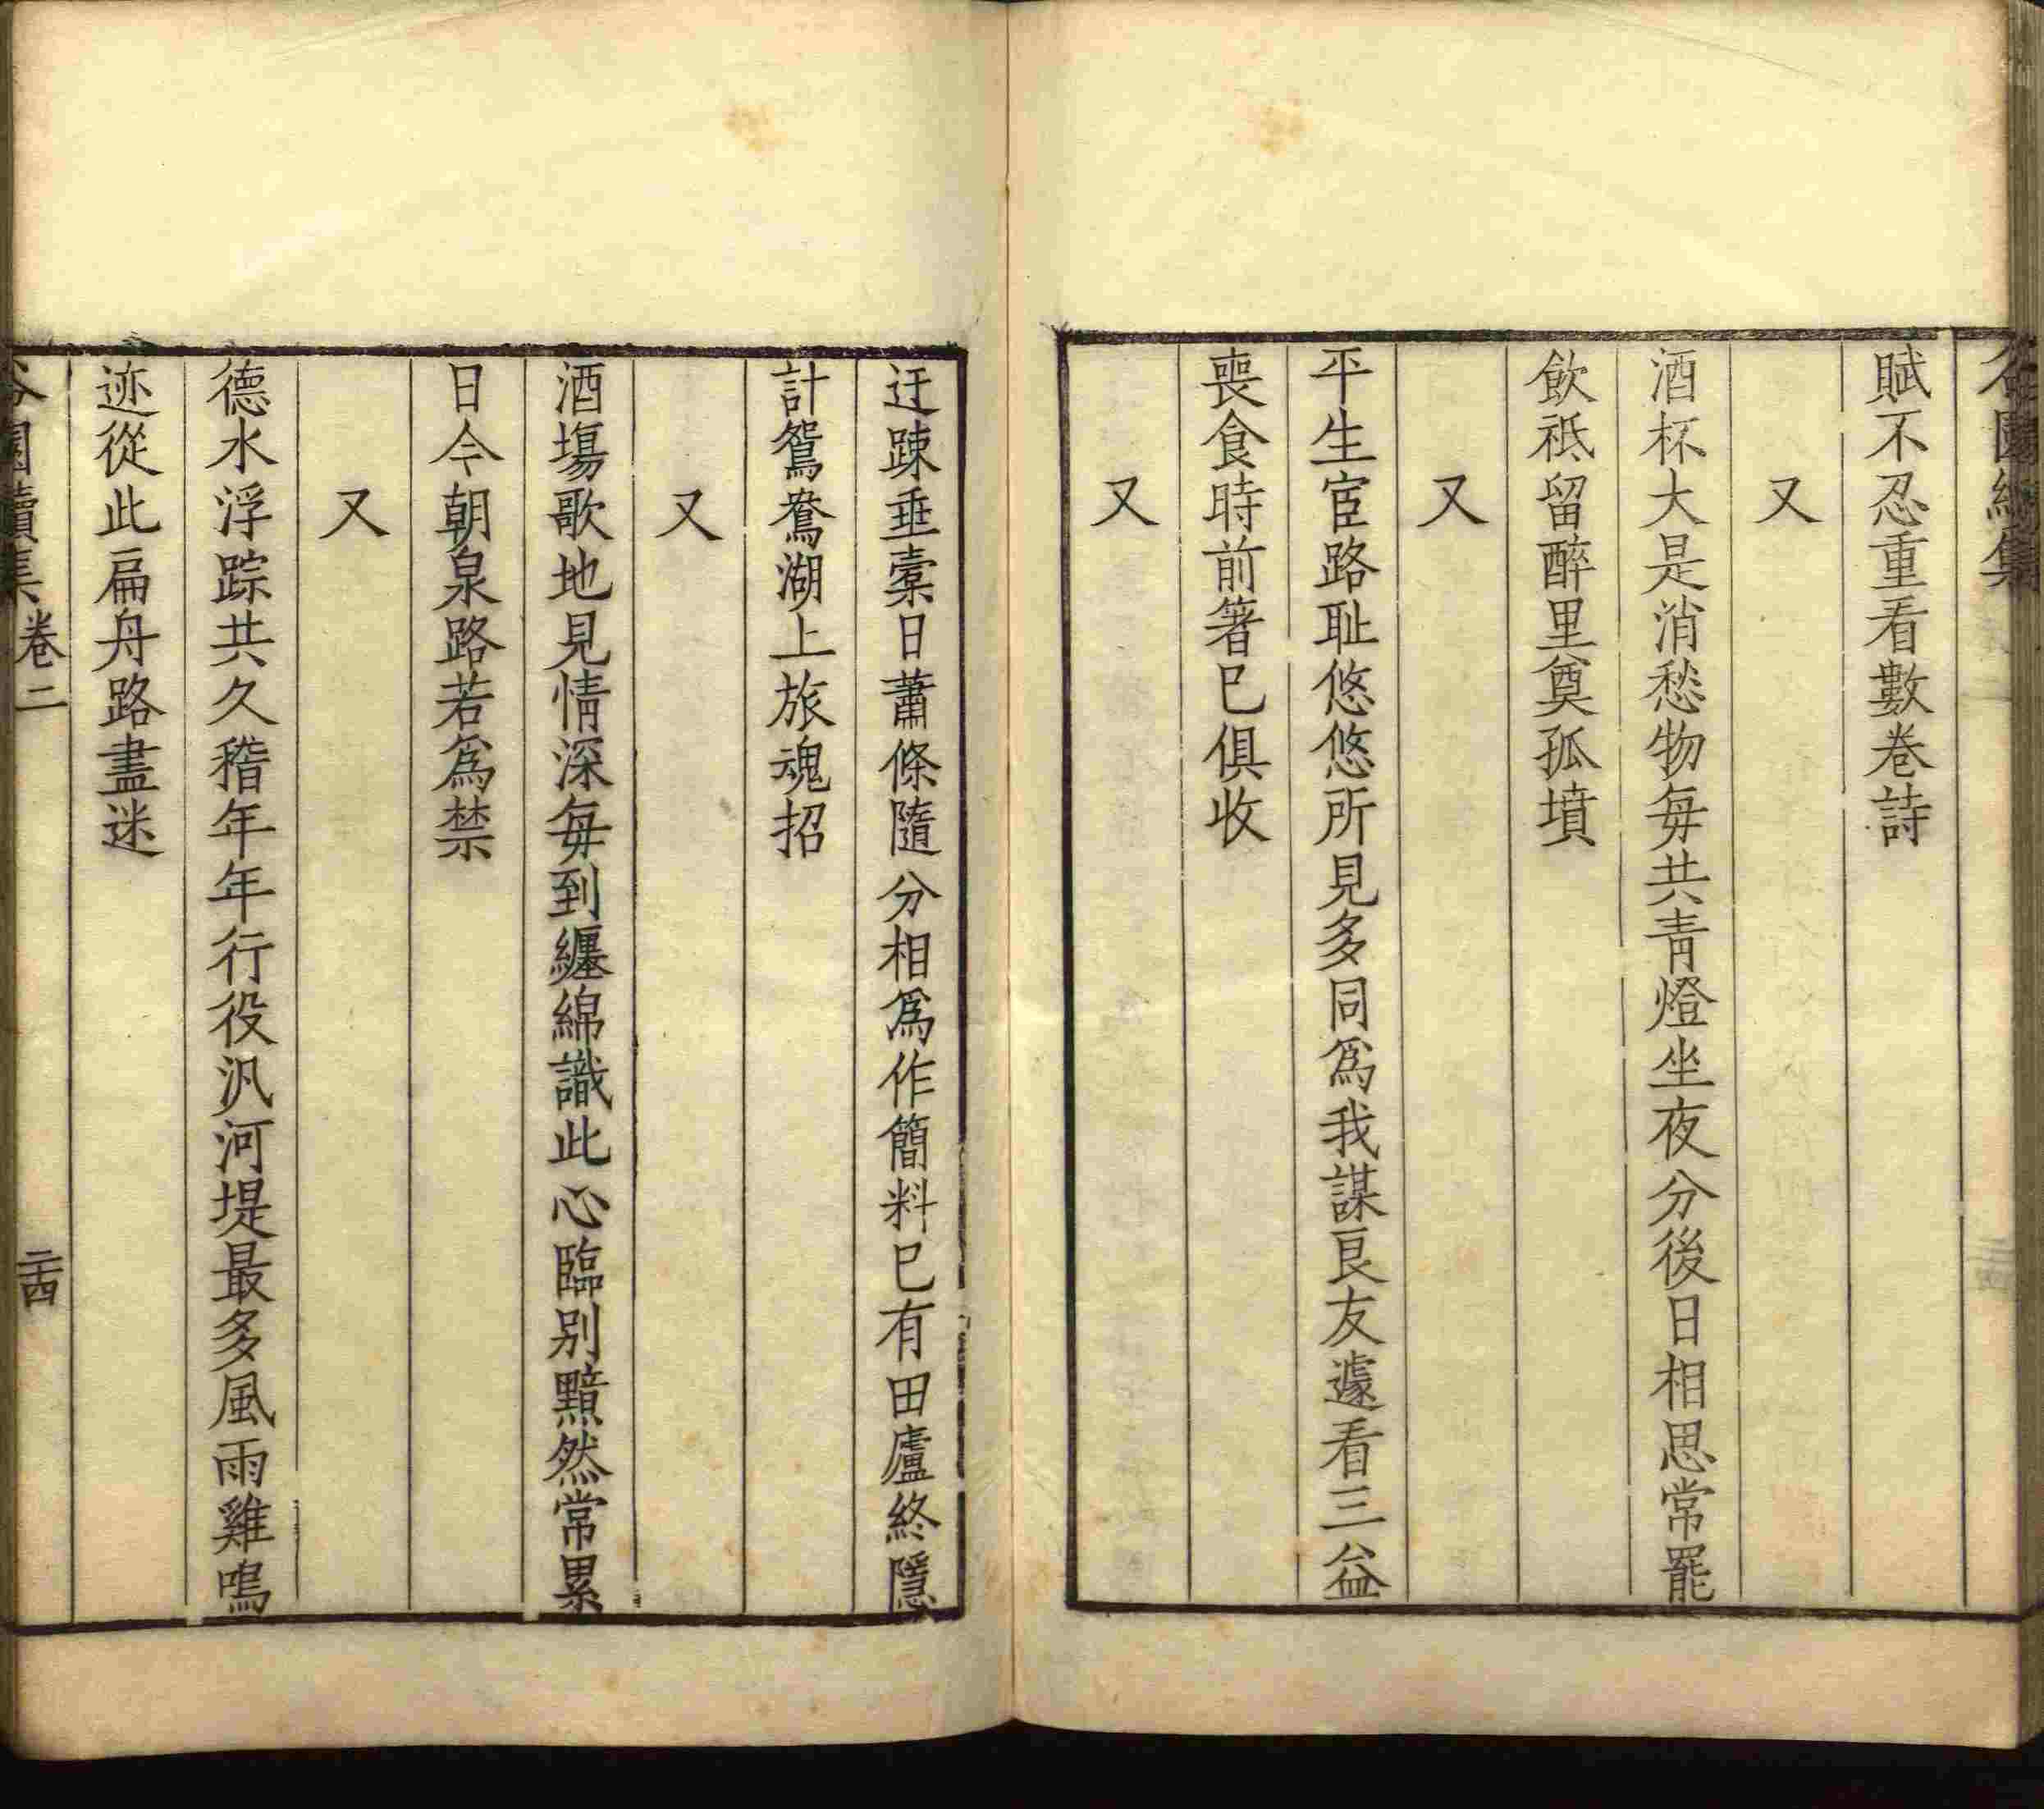 賦不忍重看數卷詩
又
酒杯大是消愁物每共青燈坐夜分後日相思常罷
飲祗留醉里奠孤墳
又
平生宦路耻悠悠所見多同爲我謀良友遽看三益
喪食時前箸已俱收
又
迂踈垂槖日蕭條隨分相爲作簡料已有田廬終隱
計鴛鴦湖上旅魂招
又
酒塲歌地見情深每到纏綿識此心臨別黯然常累
日今朝泉路若爲禁
又
德水浮踪共久稽年年行役汎河堤最多風雨雞鳴
迹從此扁舟路盡迷
園續集 卷二 二十四